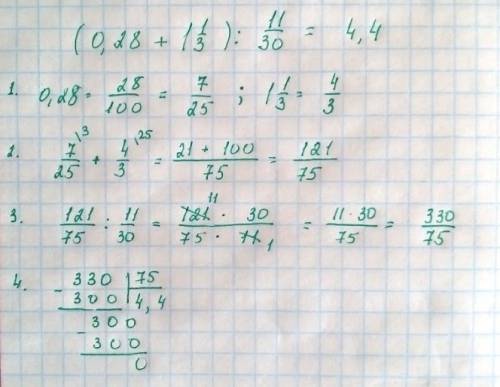 (0,28 + 1 1/3) : 11/30 = 4,4
1. 0,28 = 28/100 = 7/25 ; 1 1/3 = 4/3
2. 7/25 \3 + 4/3 \25 = 21 + 100/75 = 121/75
3. 121/75 : 11/30 = 121 11 · 30/75 · 11 1 = 11 · 30/75 = 330/75
4. - 330 | 75
300 | 4,4
- 300
300
0